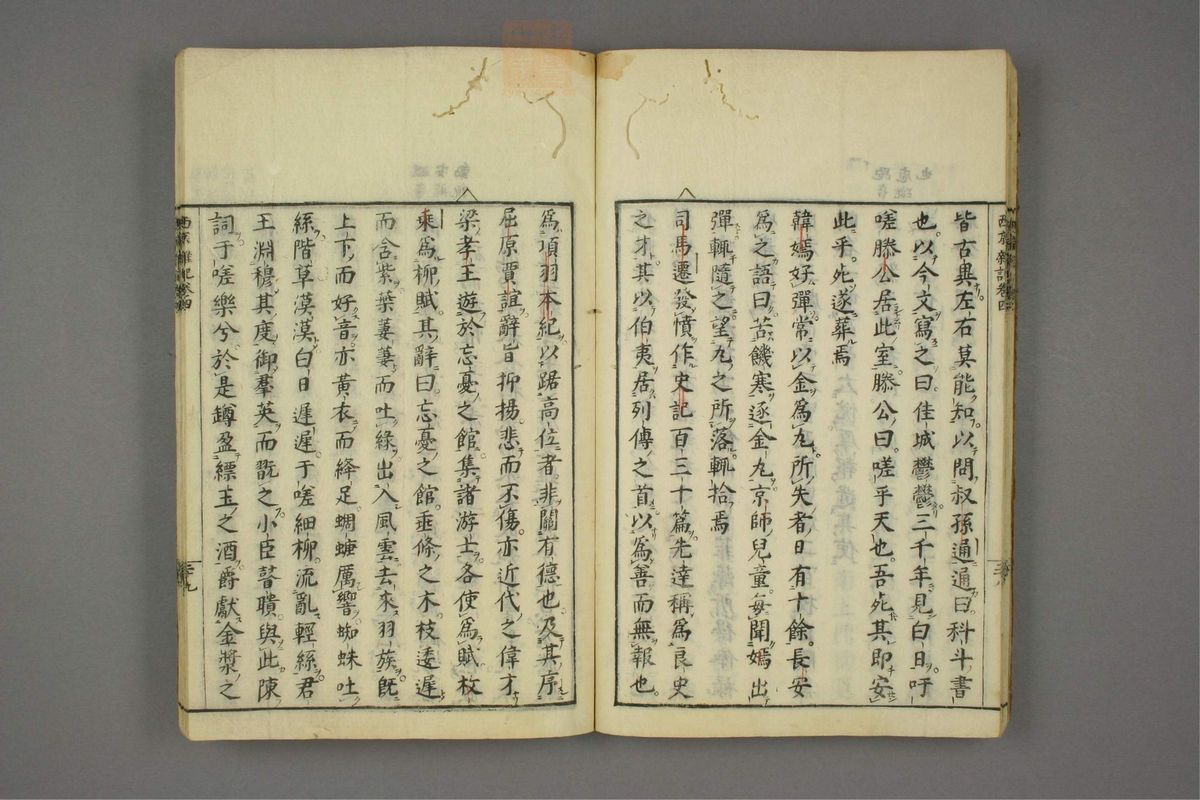 皆古典左右莫能知以問叔孫通通曰科斗書
也以今文寫之曰佳城鬱鬱三千年見白日吁
嗟滕公居此室滕公曰嗟乎天也吾死其即安
此乎死遂葬焉
韓嫣好彈常以金為丸所失者日有十餘長安
為之語曰苦饑寒逐金丸京師兒童每聞嫣出
彈輒隨之望丸之所落輒拾焉
司馬遷發憤作史記百三十篇先達稱為良史
之才其以伯夷居列傳之首以為善而無報也
為項羽本紀以踞高位者非關有德也及其序
屈原賈誼辭旨抑揚悲而不傷亦近代之偉才
梁孝王遊於忘憂之館集諸游士各使為賦枚
乘為柳賦其辭曰忘憂之館垂條之木枝逶遲
而含紫葉萋萋而吐綠出入風雲去來羽族既
上下而好音亦黃衣而絳足蜩螗厲響蜘蛛吐
絲階草漠漠白日遲遲于嗟細柳流亂輕絲君
王淵穆其度御羣英而翫之小臣瞽聵與此陳
詞于嗟樂兮於是罇盈縹玉之酒爵獻金漿之
西京雜記卷四
西京雜記卷四